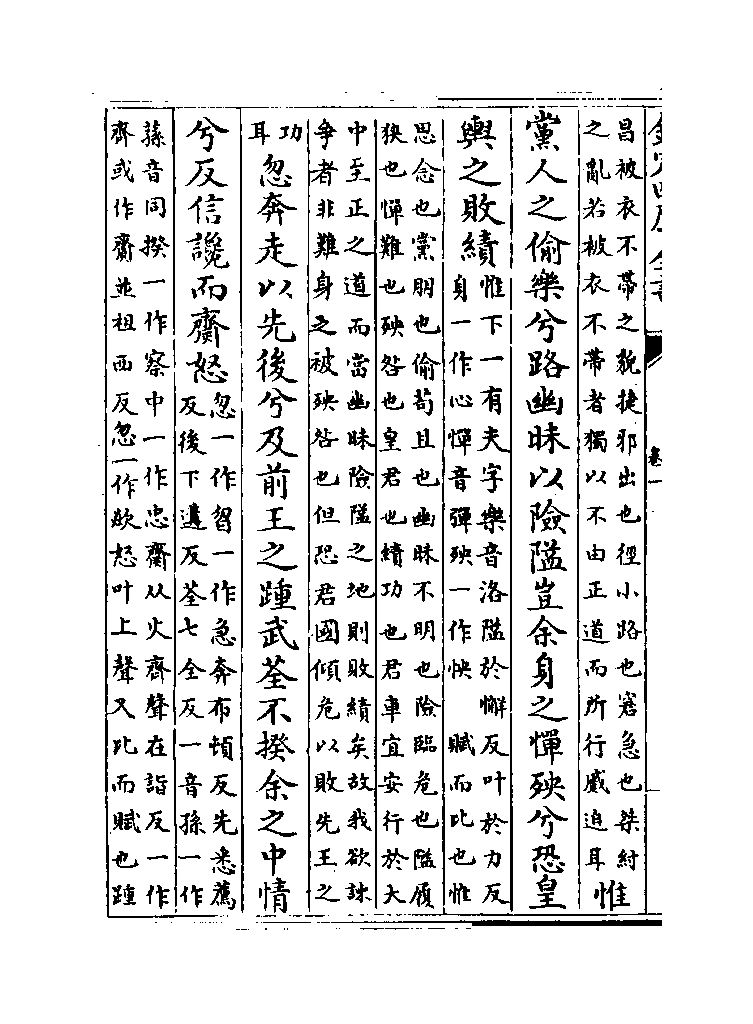 欽定四庫全書
卷一
昌被衣不帶之貌捷邪出也徑小路也窘急也桀紂
之亂若被衣不帶者獨以不由正道而所行蹙迫耳惟
黨人之偷樂兮路幽昧以險隘豈余身之憚殃兮恐皇
輿之敗績惟下一有夫字樂音洛隘於懈反叶於力反
身一作心憚音彈殃一作怏 賦而比也惟
思念也黨朋也偷苟且也幽昧不明也險臨危也隘履
狹也憚難也殃咎也皇君也績功也君車宜安行於大
中至正之道而當幽昧險隘之地則敗績矣故我欲諫
爭者非難身之被殃咎也但恐君國傾危以敗先王之
功耳忽奔走以先後兮及前王之踵武荃不揆余之中情
兮反信讒而齌怒忽一作曶一作急奔布頓反先悉薦
反後下遘反荃七全反一音孫一作
蓀音同揆一作察中一作忠齌从火齊聲在詣反一作
齊或作齎並祖西反忽一作欻怒叶上聲又比而賦也踵